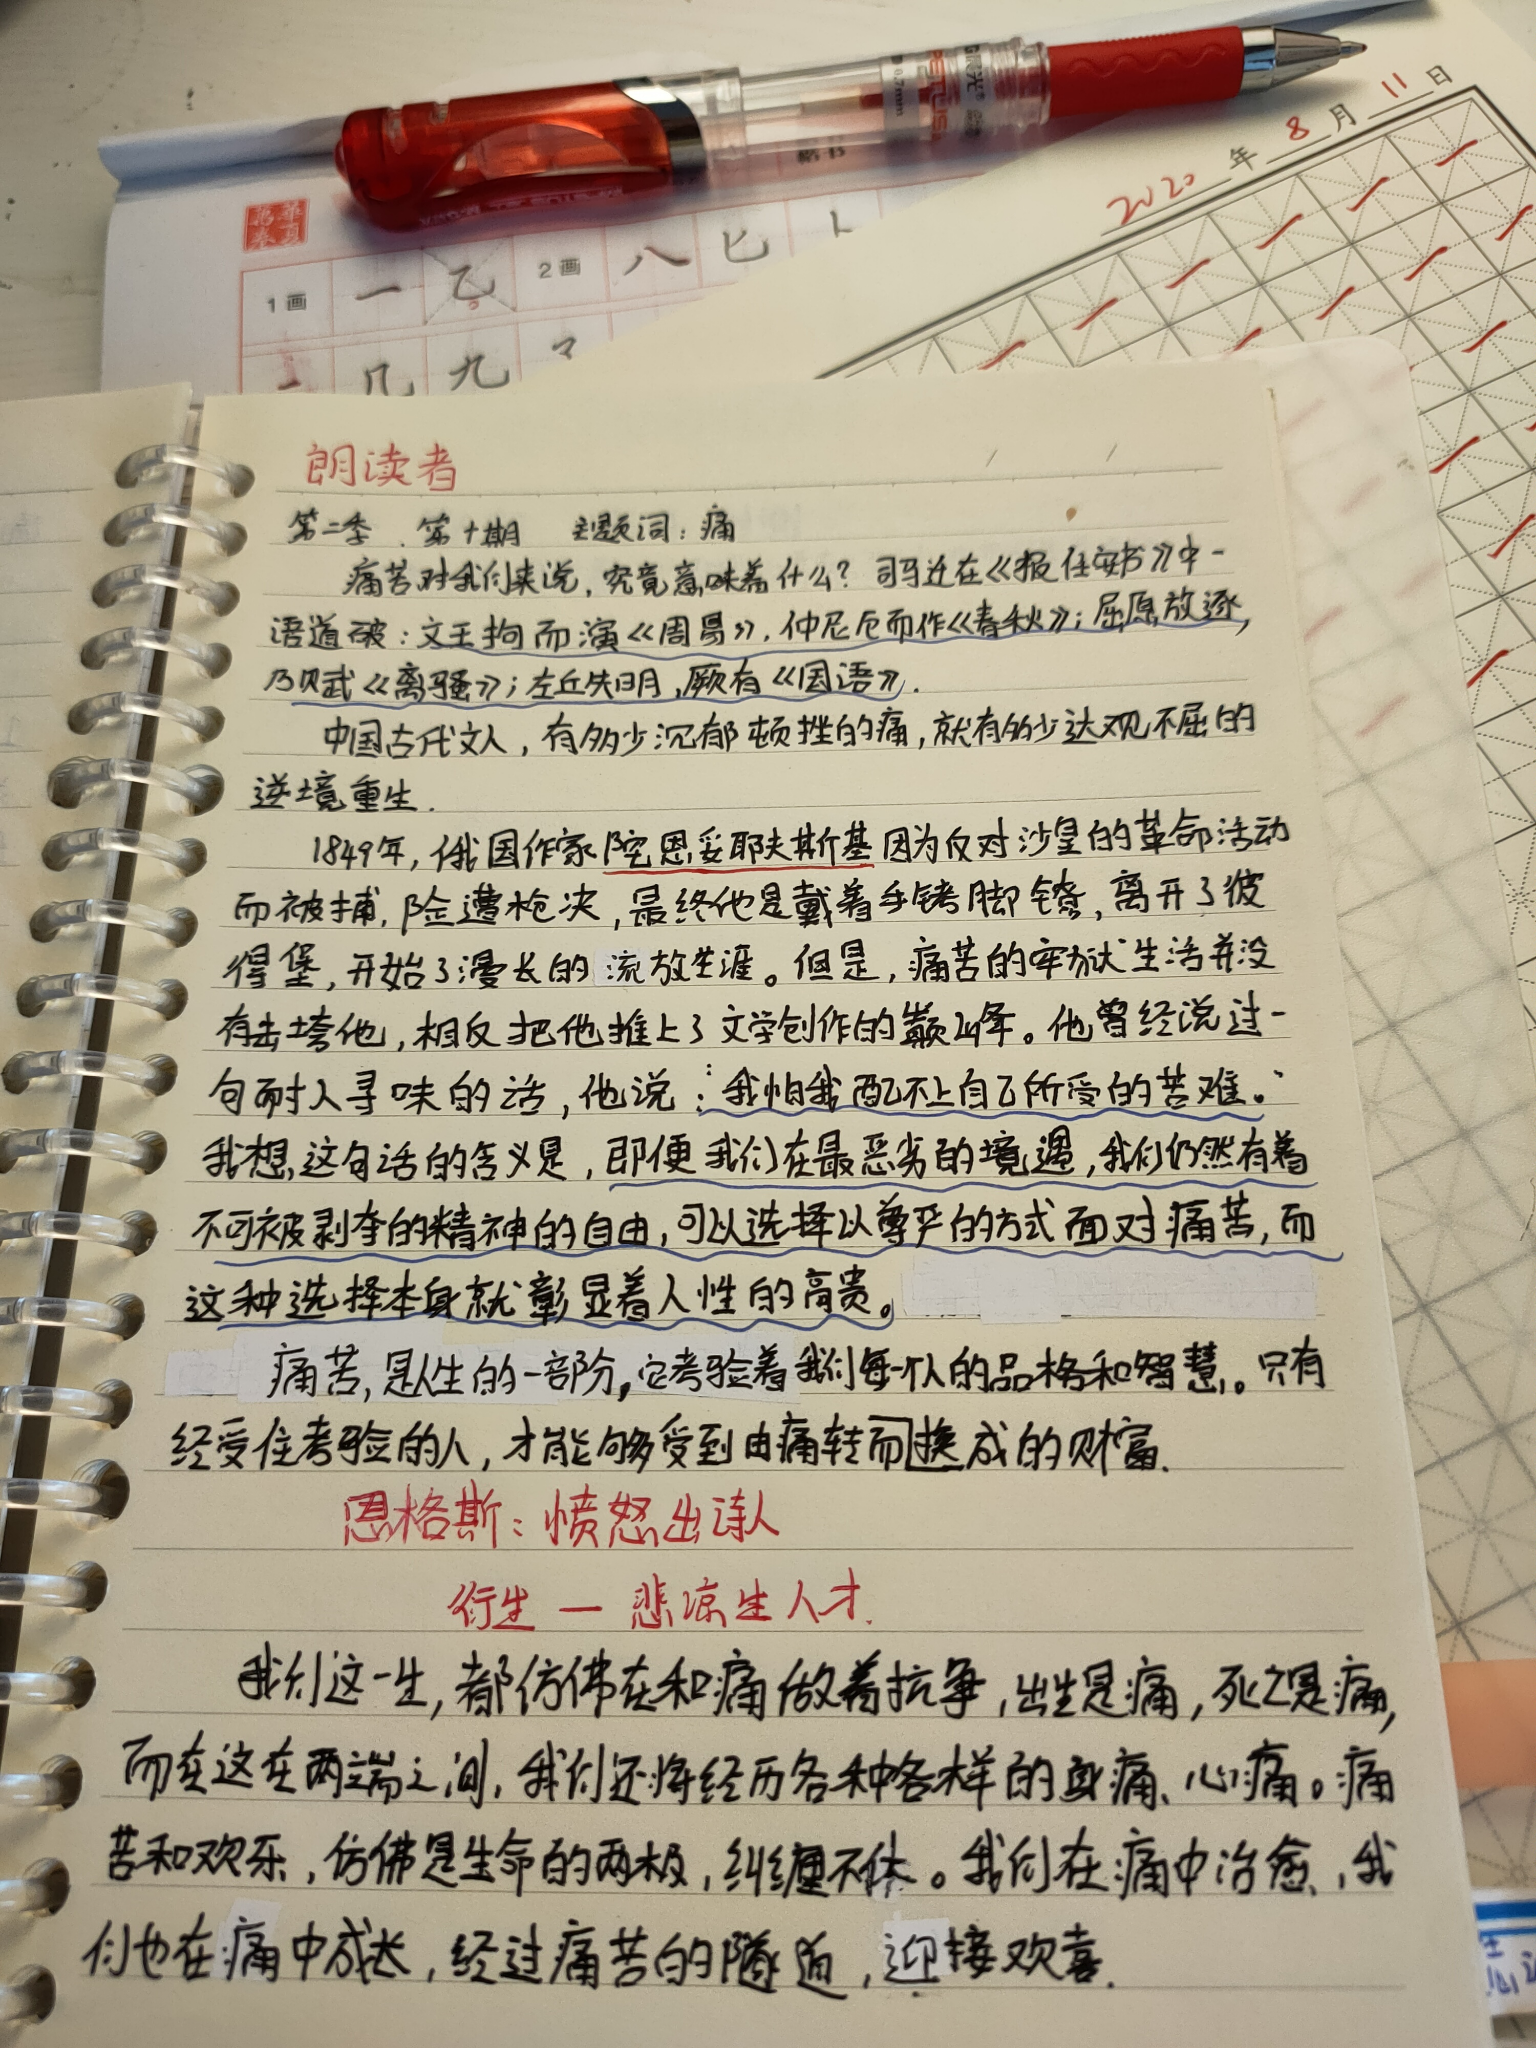 2020年8月11日
1画 一 乙 2画 八 匕
几 九
朗读者
第二季、第十期 主题词：痛
痛苦对我们来说，究竟意味着什么？司马迁在《报任安书》中一
语道破：文王拘而演《周易》，仲尼厄而作《春秋》；屈原放逐，
乃贝武《离骚》；左丘失明，厥有《国语》.
中国古代文人，有多少沉郁顿挫的痛，就有多少达观不屈的
逆境重生.
1849年，俄国作家陀思妥耶夫斯基因为反对沙皇的革命活动
而被捕，险遭枪决，最终他是戴着手铐脚镣，离开了彼
得堡，开始了漫长的流放生涯。但是，痛苦的牢狱生活并没
有击垮他，相反把他推上了文学创作的巅峰。他曾经说过一
句耐人寻味的话，他说：我怕我配不上自己所受的苦难。
我想，这句话的含义是，即便我们在最恶劣的境遇，我们仍然有着
不可被剥夺的精神的自由，可以选择以尊严的方式面对痛苦，而
这种选择本身就彰显着人性的高贵。
痛苦，是人生的一部分，它考验着我们每一个人的品格和智慧。只有
经受住考验的人，才能够受到由痛转而换成的财富.
恩格斯：愤怒出诗人
衍生一悲凉生人才.
我们这一生，都仿佛在和痛做着抗争，出生是痛，死亡是痛，
而在这在两端之间，我们还将经历各种各样的身痛、心痛。痛
苦和欢乐，仿佛是生命的两极，纠缠不休。我们在痛中治愈，我
们也在痛中成长，经过痛苦的隧道，迎接欢喜.